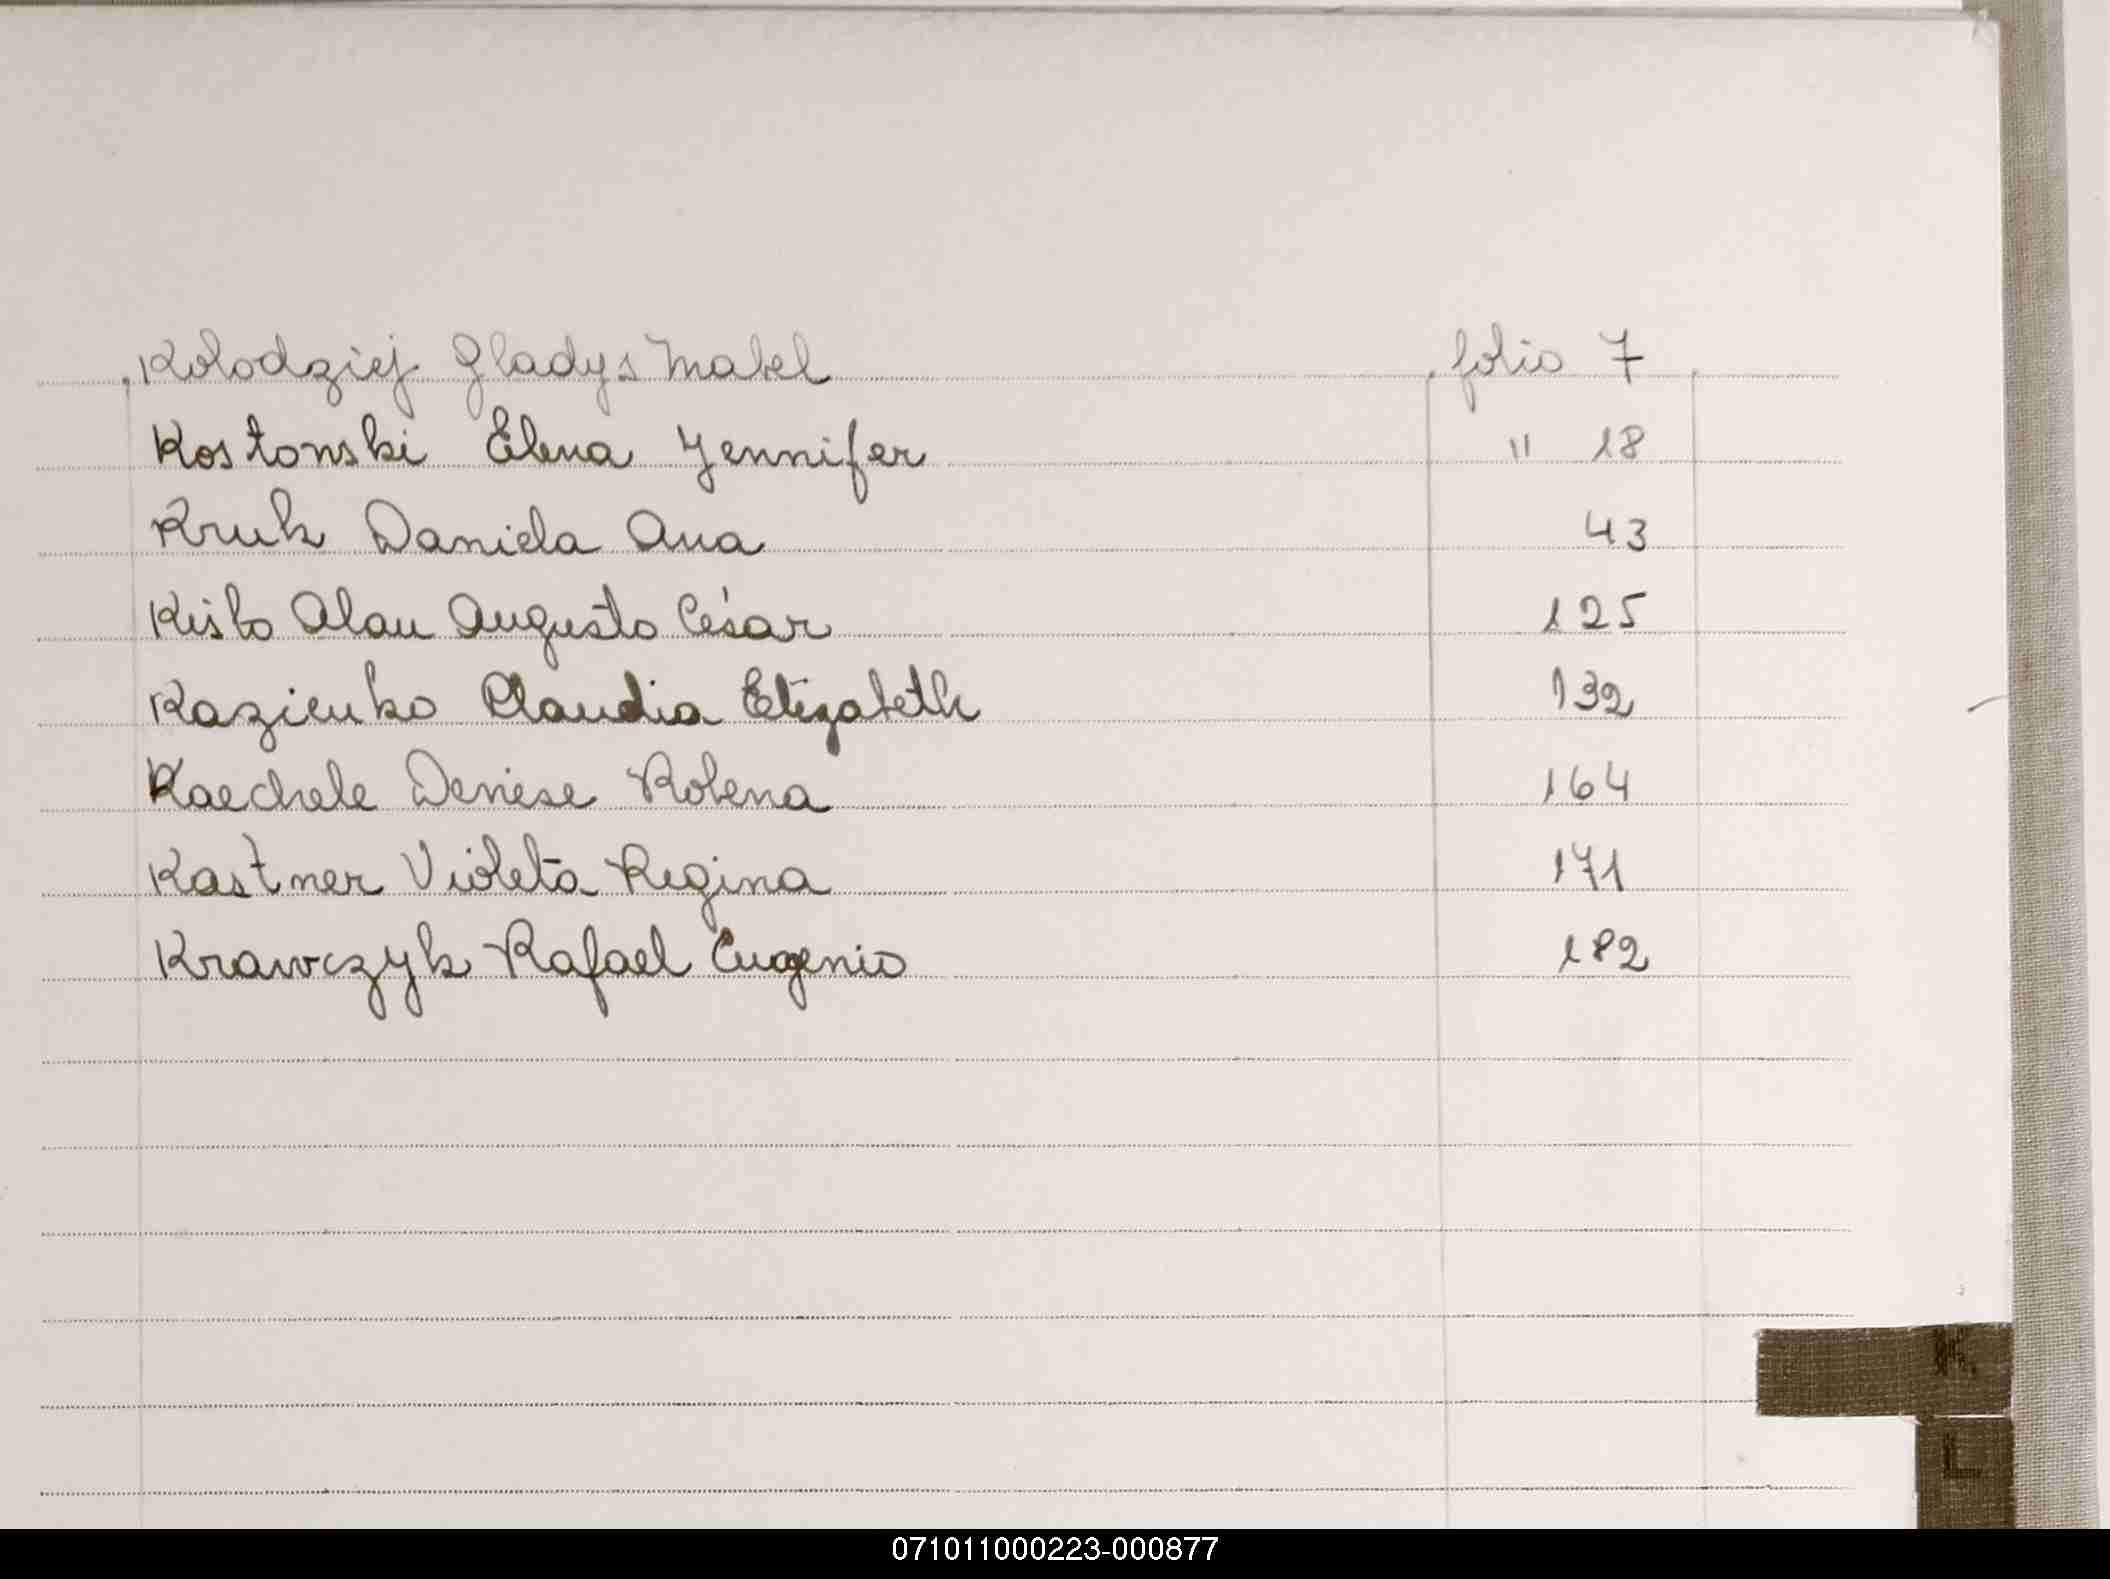 Kolodziej Gladys Mabel folio 7
Kostonski Elena Jennifer " 18
Kruk Daniela Ana 43
Kisto Alan Augusto César 125
Kazienko Claudia Elizabeth 132
Kaechele Denise Robena 164
Kastner Violeta Regina 171
Krawczyk Rafael Eugenio 182
K
L
071011000223-000877